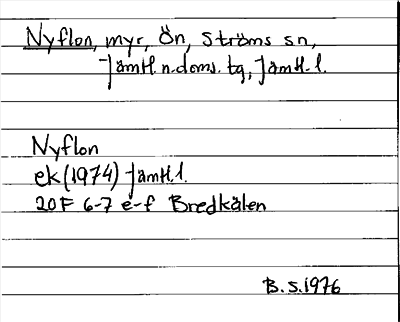 Nyflon, myr, Ön, Ströms sn,
Jämtl. n. doms. tg, Jämtl. l.
Nyflon
ek (1974) Jämtl. l.
20F 6-7 e-f Bredkälen
B.S. 1976